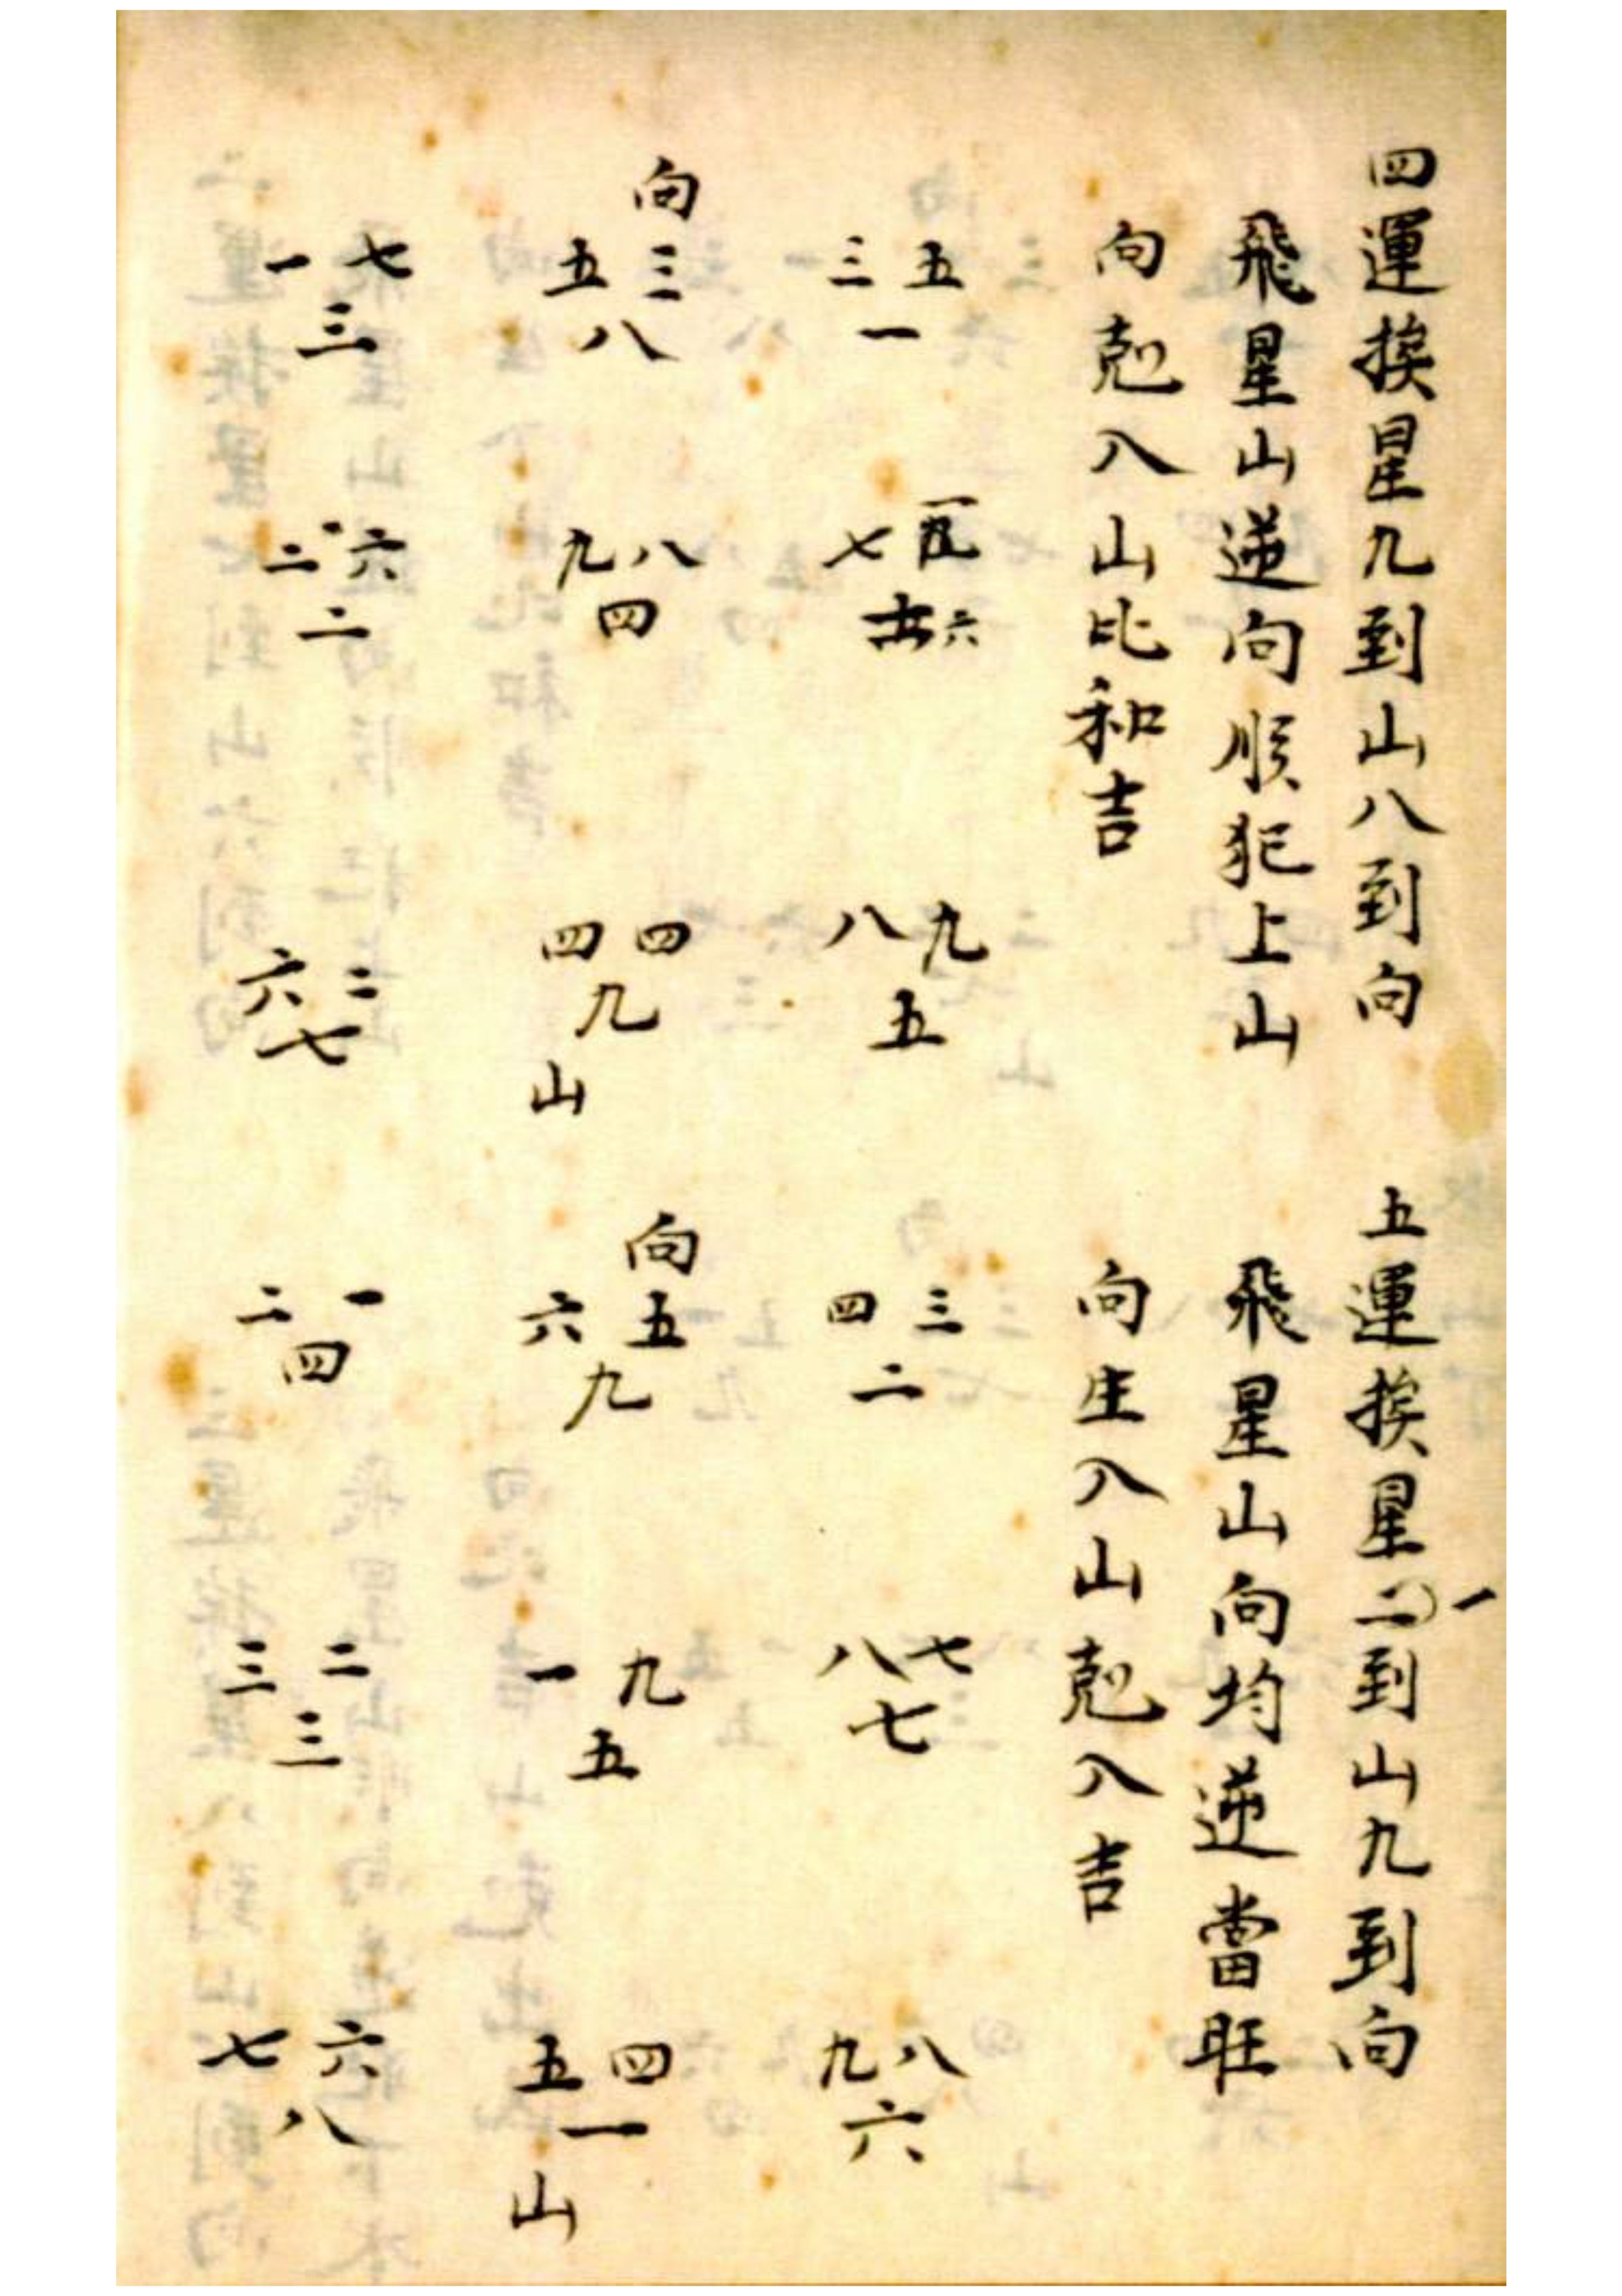 四運挨星九到山八到向
飛星山逆向順犯上山
向尅入山比和吉
五三
一
一七
六
九八
五
向
三五
八
八九
四
四四
九
山
七一
三
六二
二
二六
七
五運挨星一到山九到向
飛星山向均逆當旺
向生入山尅入吉
三四
二
七八
七
八九
六
向
五六
九
九一
五
四五
一
山
一二
四
二三
三
六七
八